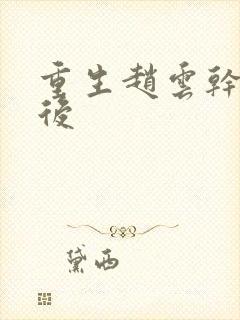 重生趙雲幹
後
黛西